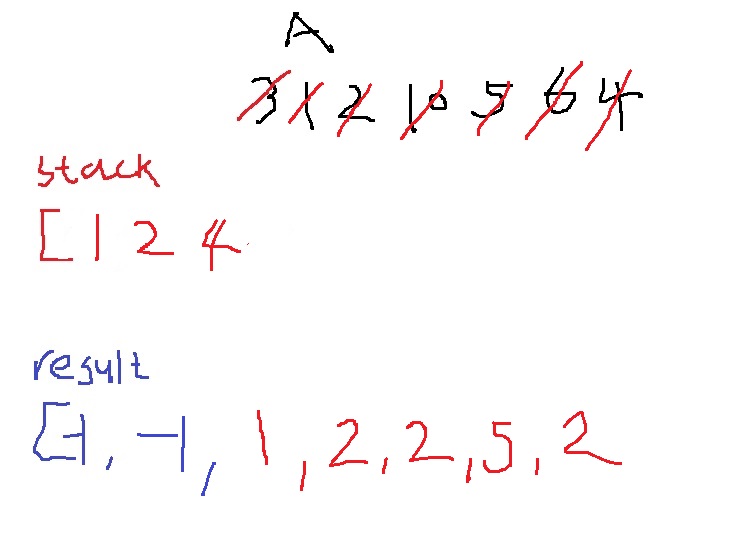 A
3 1 2 10 5 6 4
stack
[ 1 2 4
result
[-1, -1, 1, 2, 2, 5, 2